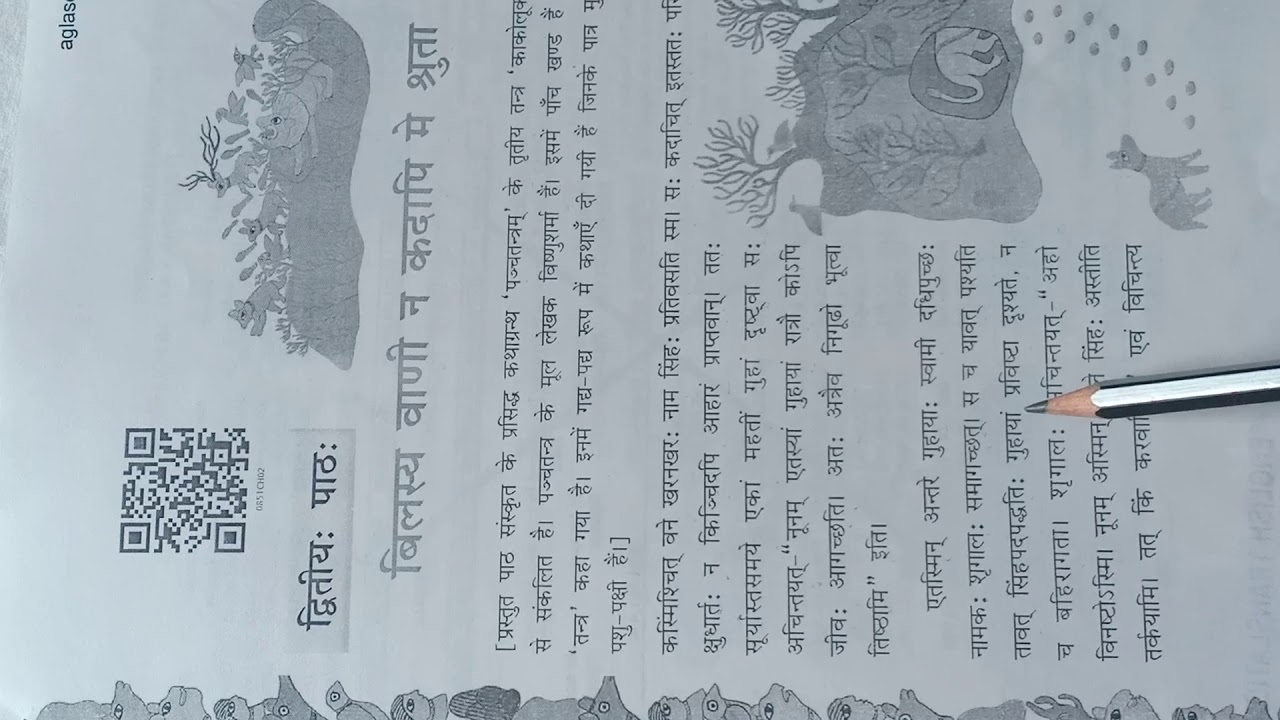 aglase
0851CH02
द्वितीयः पाठः
बिलस्य वाणी न कदापि मे श्रुता
[प्रस्तुत पाठ संस्कृत के प्रसिद्ध कथाग्रन्थ 'पञ्चतन्त्रम्' के तृतीय तन्त्र 'काकोलूक
से संकलित है। पञ्चतन्त्र के मूल लेखक विष्णुशर्मा हैं। इसमें पाँच खण्ड हैं
'तन्त्र' कहा गया है। इनमें गद्य-पद्य रूप में कथाएँ दी गयी हैं जिनके पात्र मु
पशु-पक्षी हैं।]
कस्मिंश्चित् वने खरनखरः नाम सिंहः प्रतिवसति स्म। सः कदाचित् इतस्ततः परि
क्षुधार्तः न किञ्चिदपि आहारं प्राप्तवान्। ततः
सूर्यास्तसमये एकां महतीं गुहां दृष्ट्वा सः
अचिन्तयत्-"नूनम् एतस्यां गुहायां रात्रौ कोऽपि
जीवः आगच्छति। अतः अत्रैव निगूढो भूत्वा
तिष्ठामि" इति।
एतस्मिन् अन्तरे गुहायाः स्वामी दधिपुच्छः
नामकः शृगालः समागच्छत्। स च यावत् पश्यति
तावत् सिंहपदपद्धतिः गुहायां प्रविष्टा दृश्यते, न
च बहिरागता। शृगालः अचिन्तयत्-"अहो
विनष्टोऽस्मि। नूनम् अस्मिन् सिंहः अस्तीति
तर्कयामि। तत् किं करवा एवं विचिन्त्य